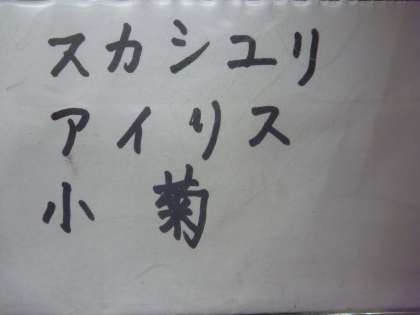 スカシユリ
アイリス
小菊